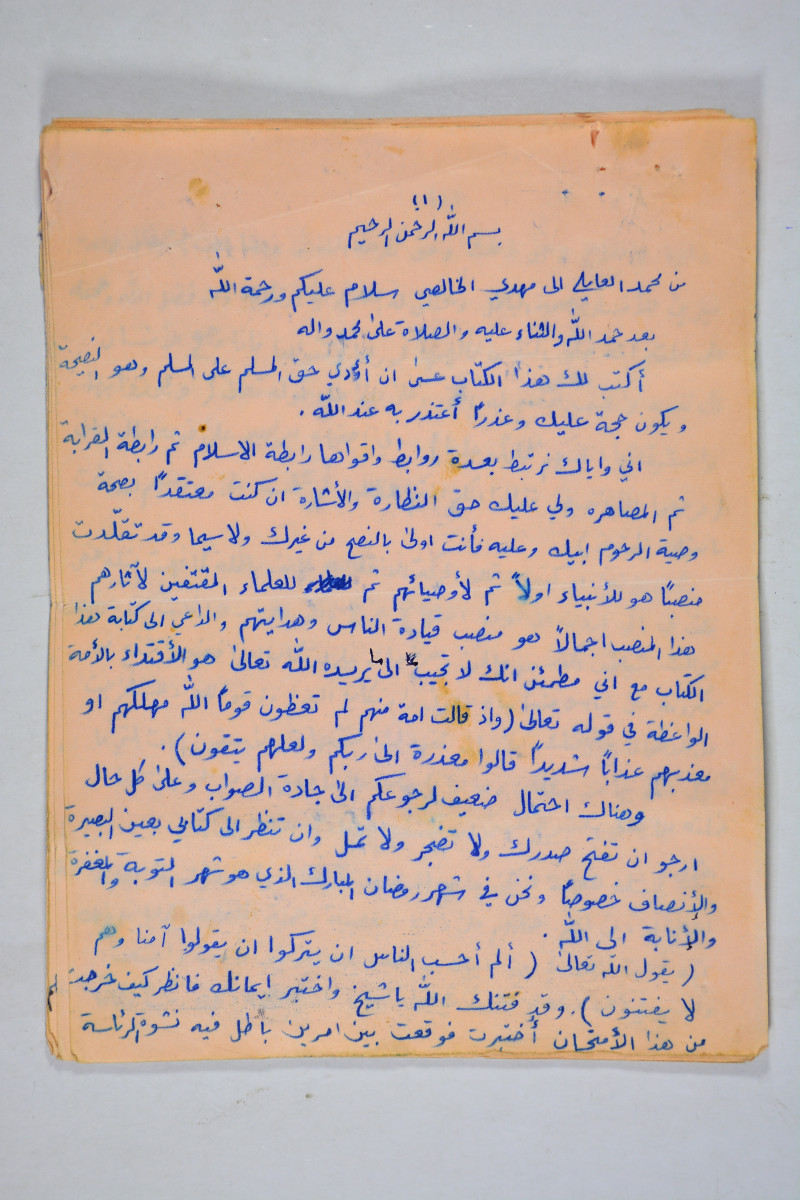 (١)
بسم الله الرحمن الرحيم
من محمد العاملي الى مهدي الخالصي سلام عليكم ورحمة الله
بعد حمد الله والثناء عليه والصلاة على محمد واله
أكتب لك هذا الكتاب عسى ان أؤدي حق المسلم على المسلم وهو النصيحة
ويكون حجة عليك وعذراً أعتذر به عند الله .
اني واياك نرتبط بعدة روابط واقواها رابطة الاسلام ثم رابطة القرابة
ثم المصاهره ولي عليك حق النظارة والأشارة ان كنت معتقداً بصحة
وصية المرحوم ابيك وعليه فأنت اولى بالنصح من غيرك ولا سيما وقد تقلّدت
منصباً هو للأنبياء اولاً ثم لأوصيائهم ثم للعلماء المقتفين لآثارهم
هذا المنصب اجمالاً هو منصب قيادة الناس وهدايتهم والداعي الى كتابة هذا
الكتاب مع اني مطمئن انك لا تجيب الى ما يريده الله تعالى هو الأقتداء بالأمة
الواعظة في قوله تعالى (واذ قالت امة منهم لم تعظون قوماً الله مهلكهم او
معذبهم عذاباً شديداً قالوا معذرة الى ربكم ولعلهم يتقون) .
وهناك احتمال ضعيف لرجوعكم الى جادة الصواب وعلى كل حال
ارجو ان تفتح صدرك ولا تضجر ولا تمل وان تنظر الى كتابي بعين البصيرة
والأنصاف خصوصاً ونحن في شهر رمضان المبارك الذي هو شهر التوبة والمغفرة
والإنابة الى الله .
(يقول الله تعالى ( ألم أحسب الناس ان يتركوا ان يقولوا آمنا وهم
لا يفتنون ). وقد فتنك الله يا شيخ واختبر ايمانك فانظر كيف خرجت
من هذا الأمتحان أختبرت فوقعت بين امرين باطل فيه نشوة الرئاسة